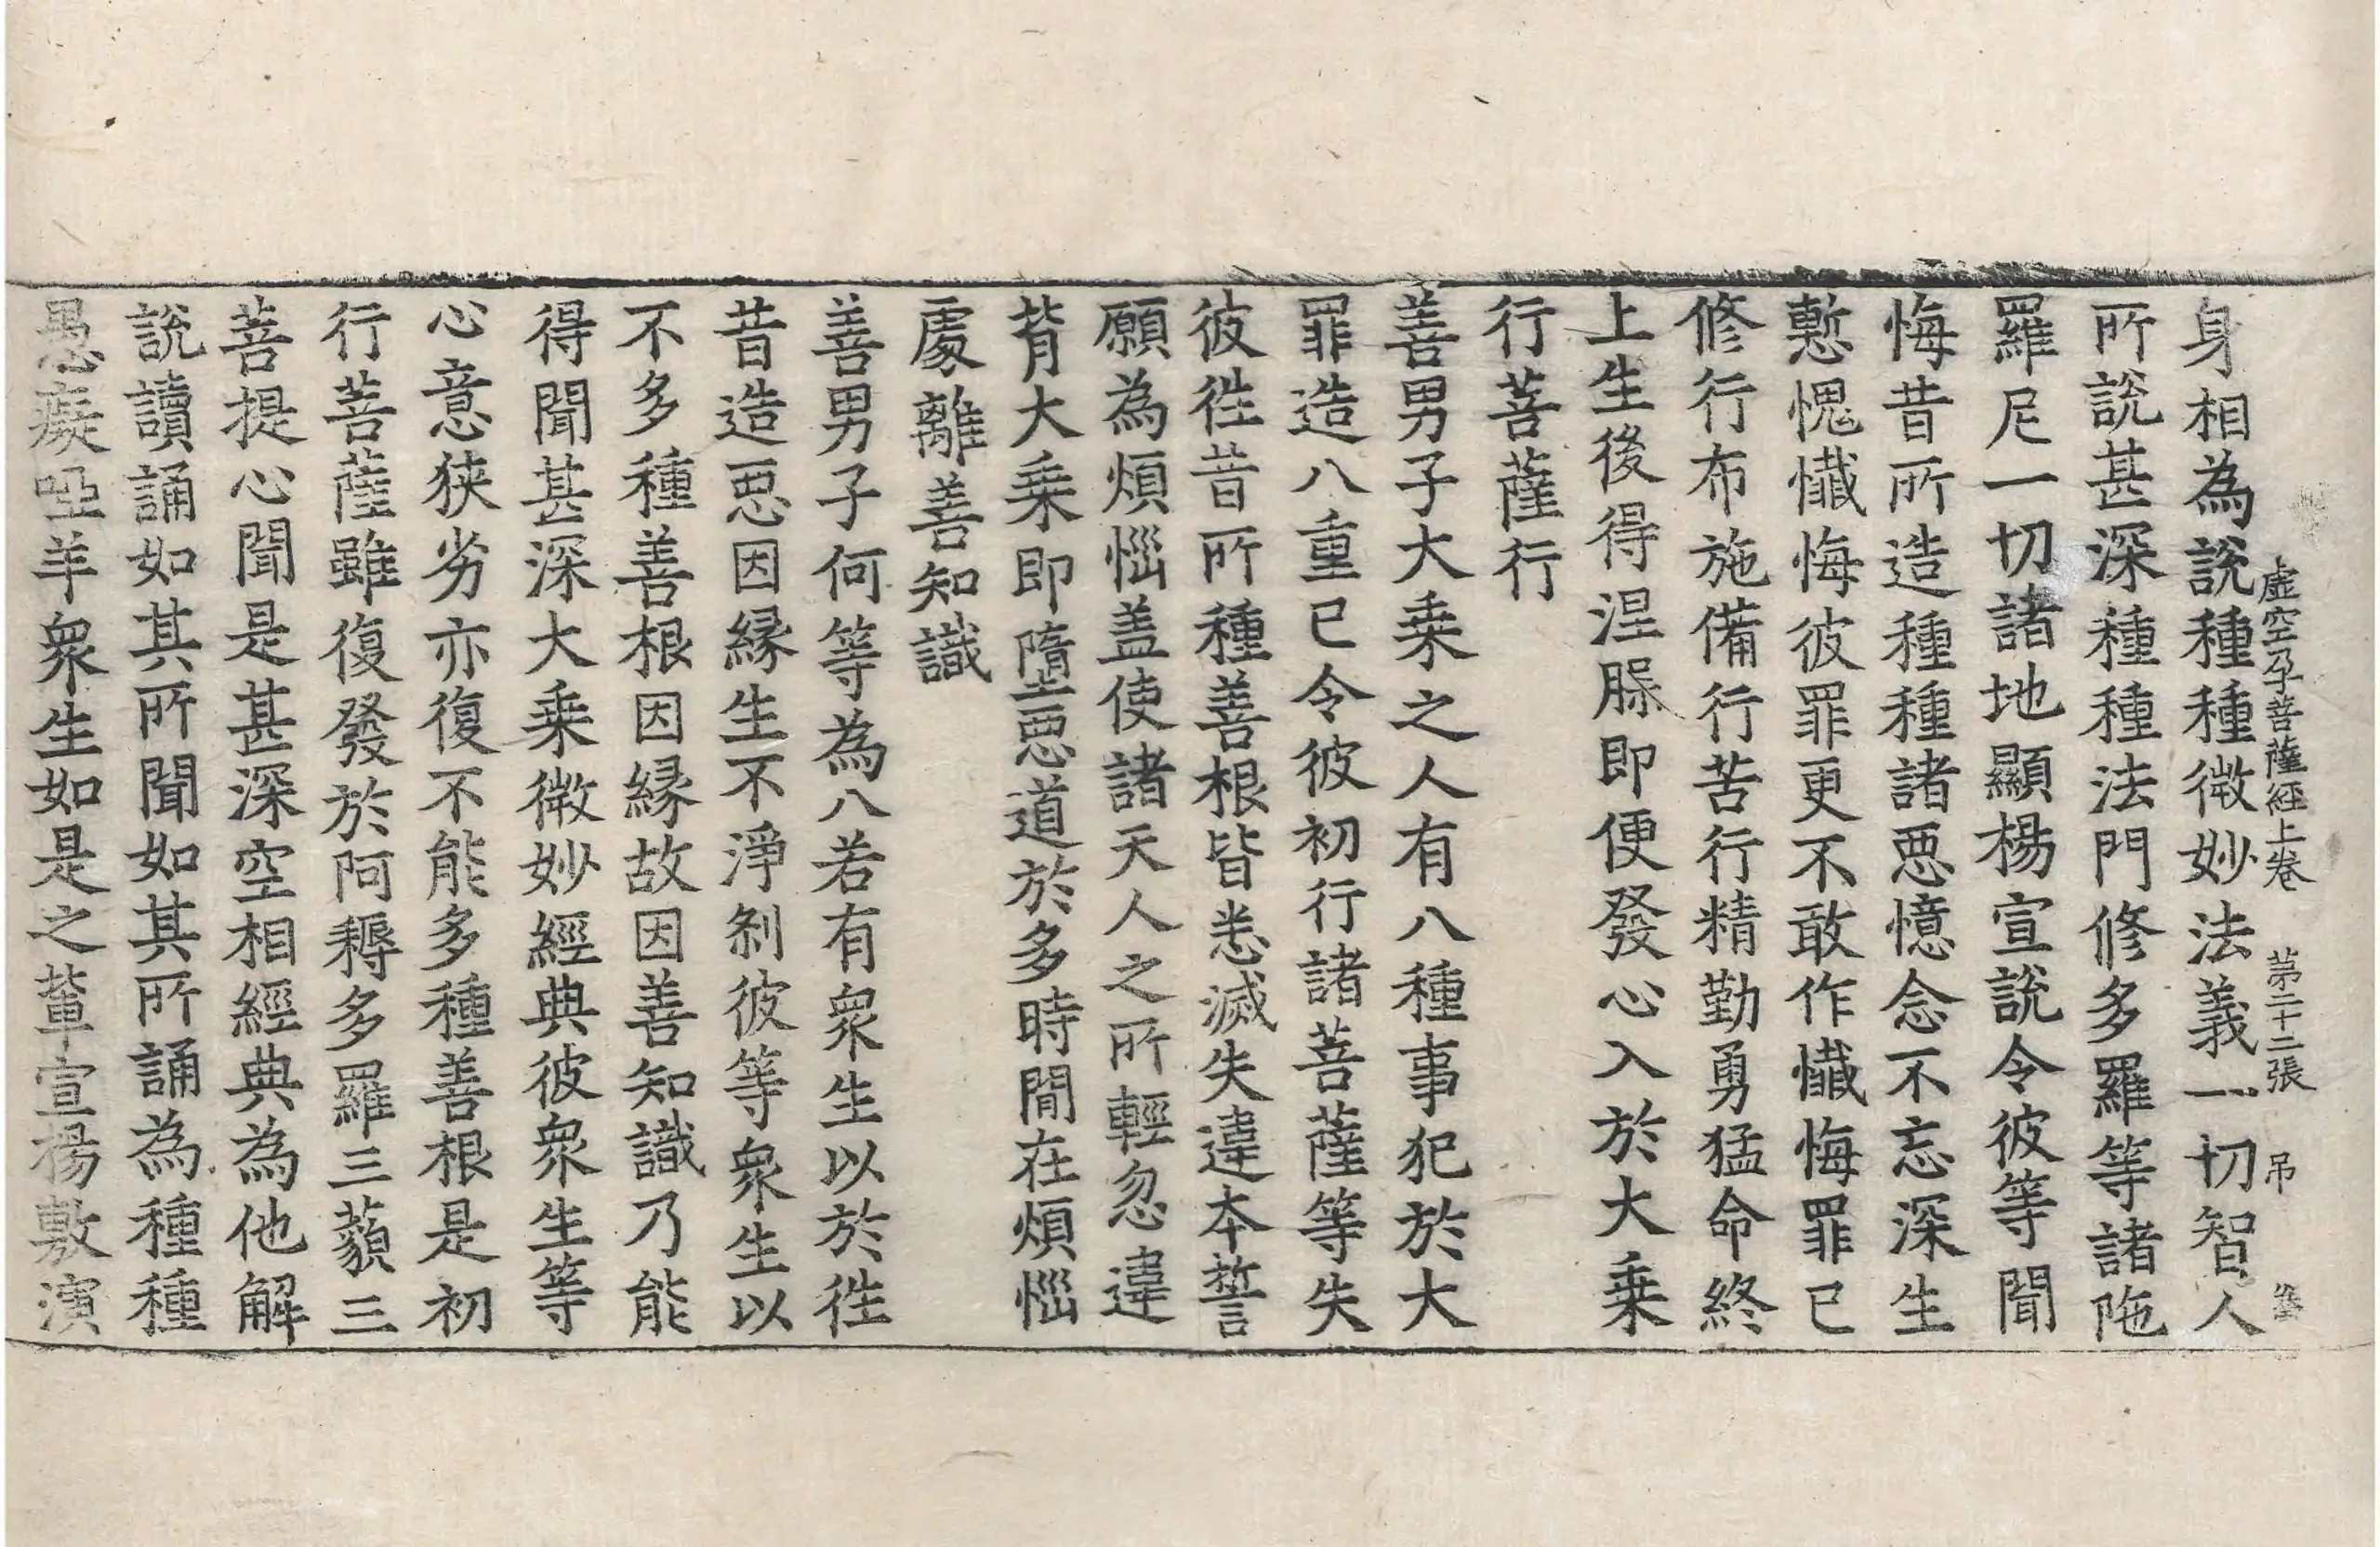 虛空孕菩薩經上卷 第二十二張 吊
身相為說種種微妙法義一切智人
所說甚深種種法門修多羅等諸陁
羅尼一切諸地顯楊宣說令彼等聞
悔昔所造種種諸惡憶念不忘深生
慙愧懺悔彼罪更不敢作懺悔罪已
修行布施備行苦行精勤勇猛命終
上生後得涅槃即便發心入於大乗
行菩薩行
善男子大乗之人有八種事犯於大
罪造八重已令彼初行諸菩薩等失
彼徃昔所種善根皆悉滅失違本誓
願為煩惱盖使諸天人之所輕忽違
背大乗即墮惡道於多時間在煩惱
處離善知識
善男子何等為八若有衆生以於徃
昔造惡因縁生不淨剎彼等衆生以
不多種善根因縁故因善知識乃能
得聞甚深大乗微妙經典彼衆生等
心意狹劣亦復不能多種善根是初
行菩薩雖復發於阿耨多羅三藐三
菩提心聞是甚深空相經典為他解
說讀誦如其所聞如其所誦為種種
愚癡啞羊衆生如是之輩宣楊敷演